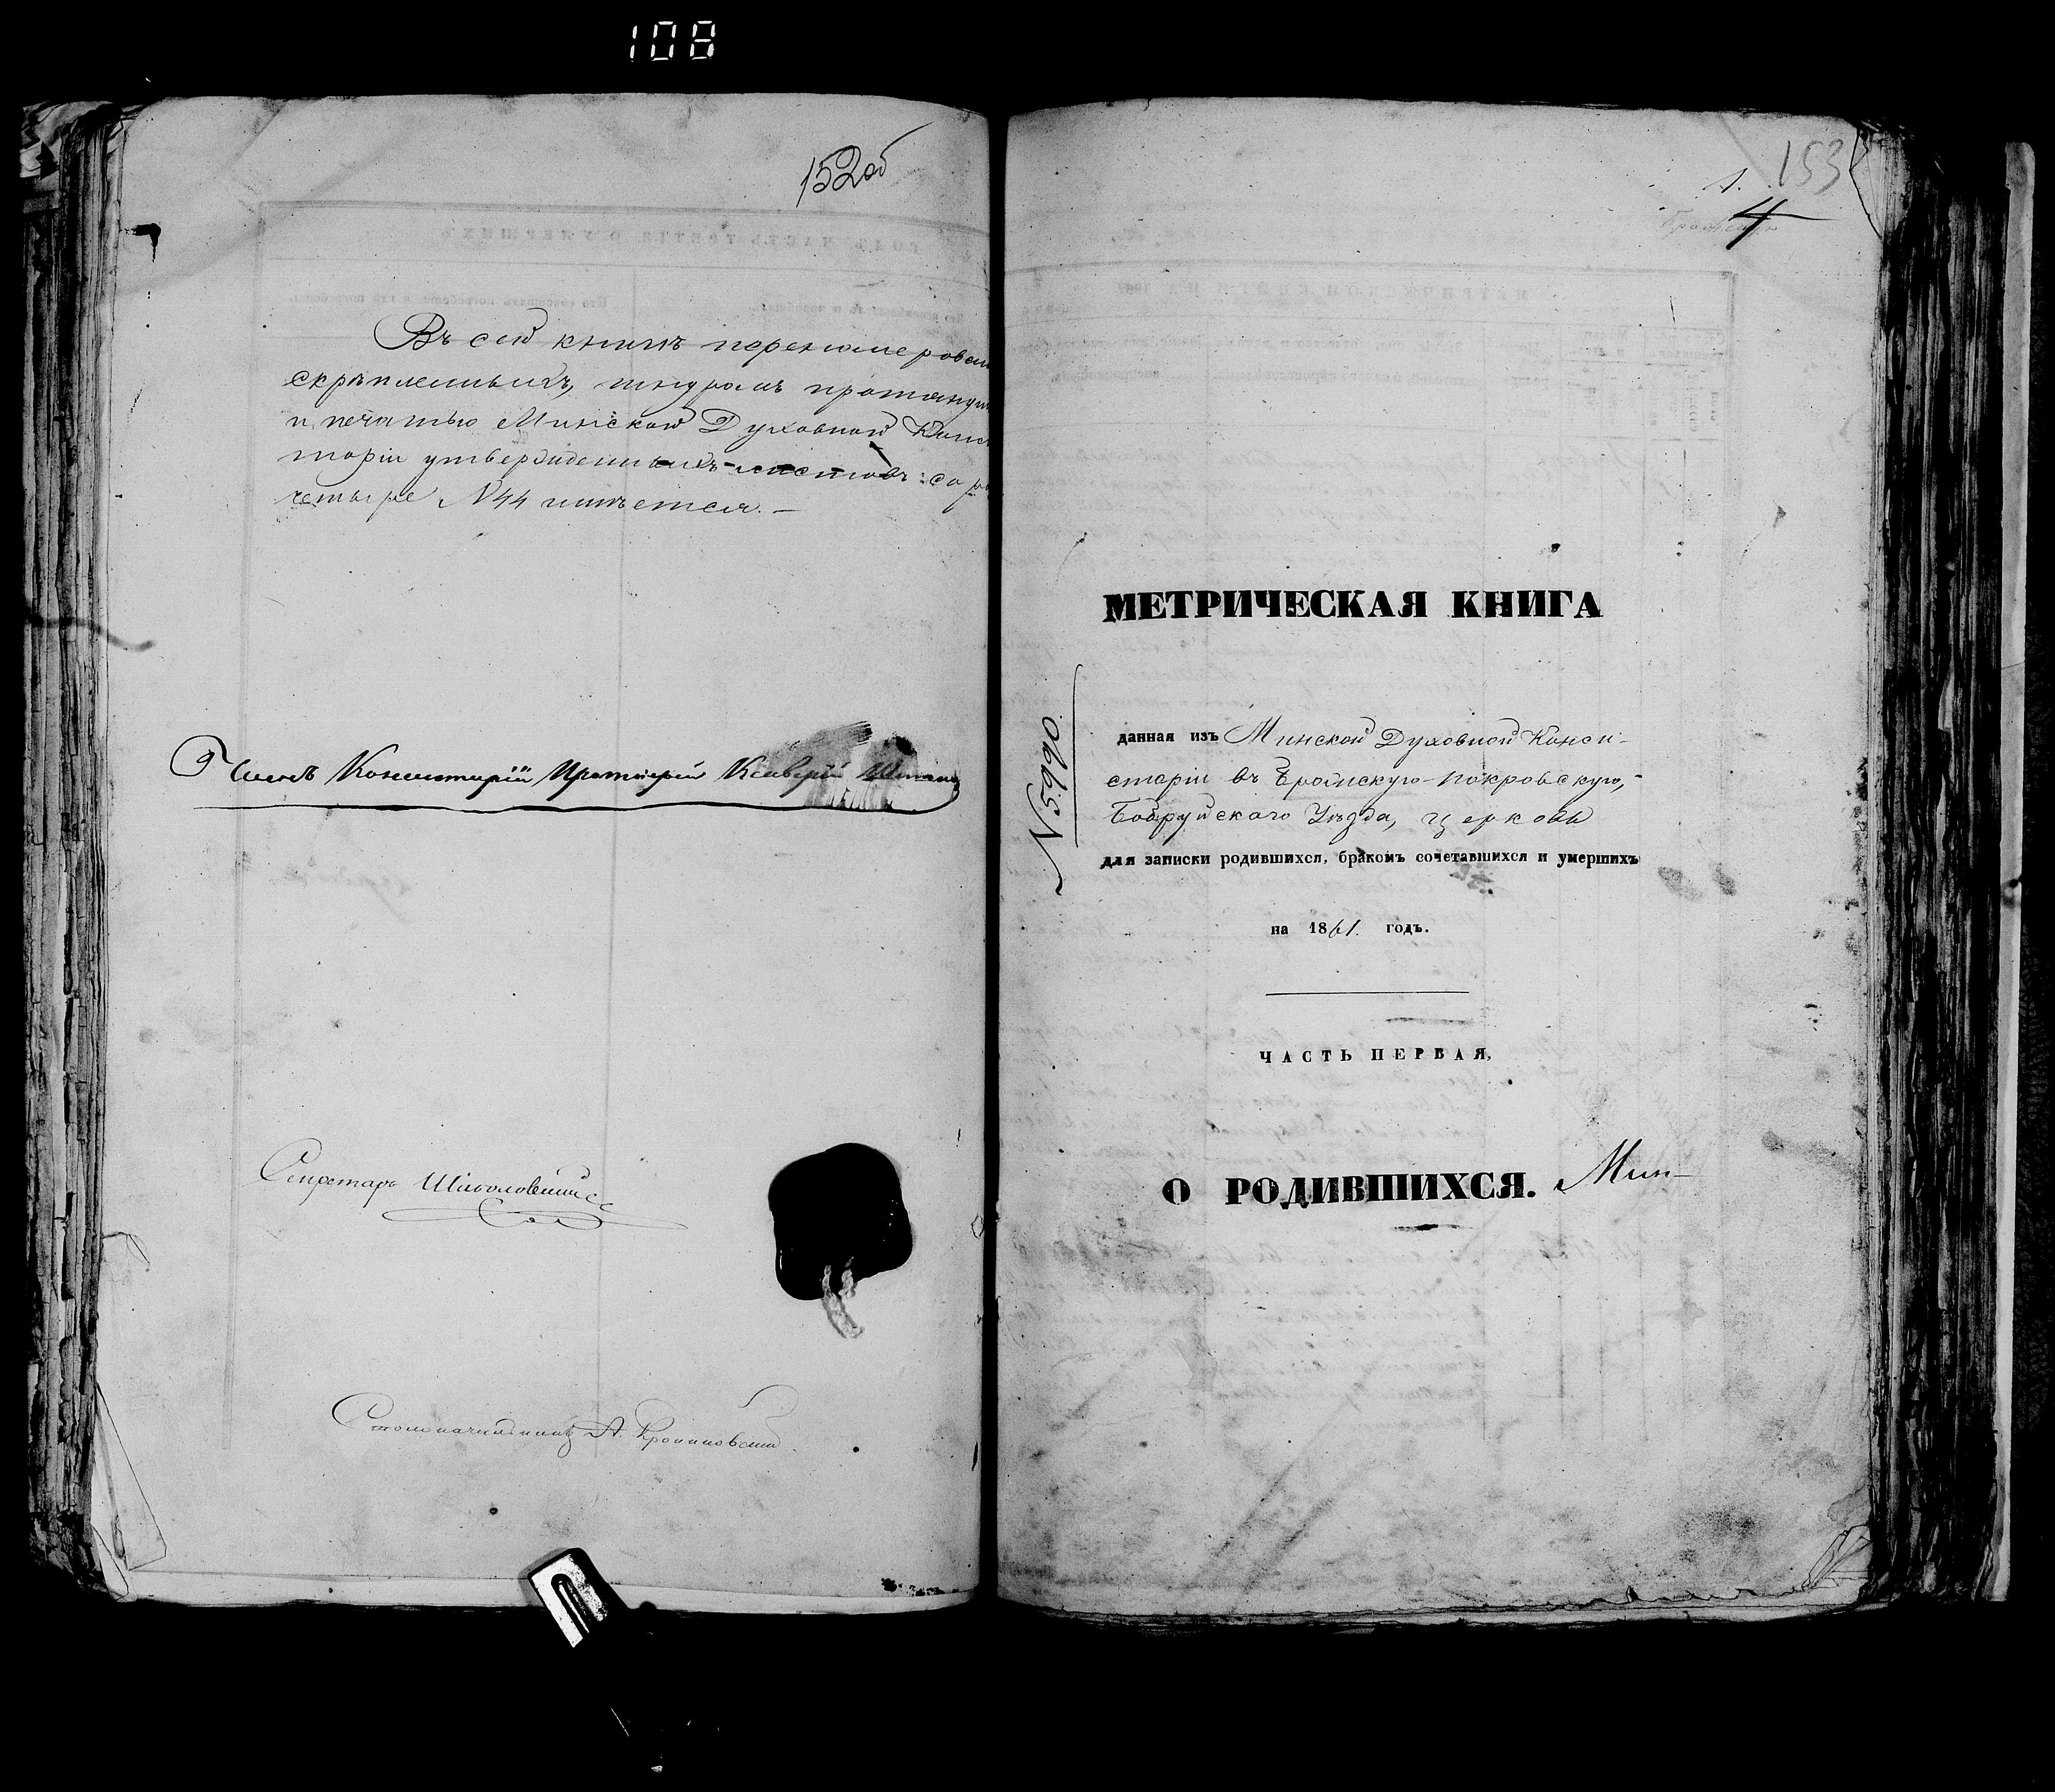 108
152об
Въ сей книгѣ перенумерован
скрѣпленныхъ, шнуромъ протянут
и печатью Минской Духовной Конси
торіи утвержденныхъ листовъ: соро
четыре N44 имѣется. —
Членъ Консисторіи Протоіерей Ксаверій
Секретарь
Столоначальникъ А.
153
1.
4
МЕТРИЧЕСКАЯ КНИГА
N5990.
данная изъ Минской Духовной Конси-
сторіи въ Брожскую-Покровскую,-
Бобруйскаго Уѣзда, церковь
для записки родившихся, бракомъ сочетавшихся и умершихъ
на 1861. годъ.
ЧАСТЬ ПЕРВАЯ,
О РОДИВШИХСЯ. Мин-